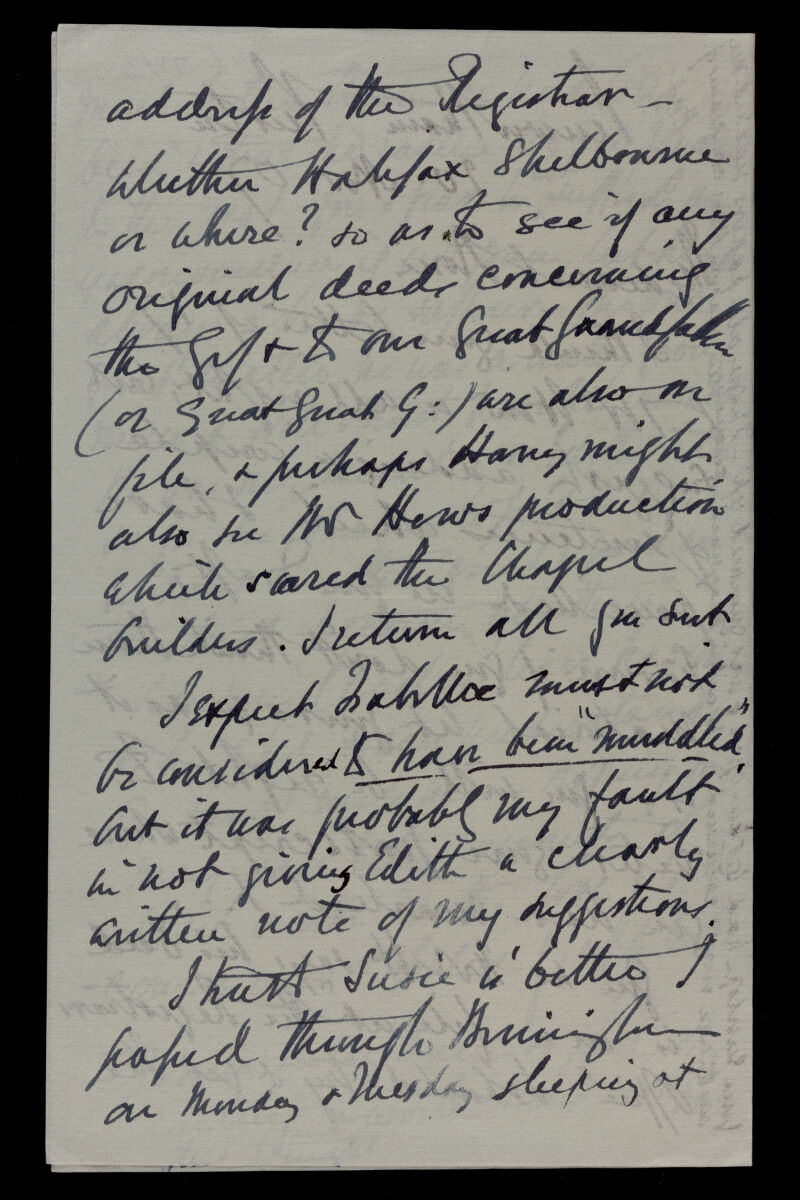 address of the Registrar —
whether Halifax Shelbourne
or where? so as to see if any
original deeds concerning
the Gift to our Great Grandfather
(or Great Great G:) are also on
file, & perhaps Harry might
also see Mr Hows production
which scared the Chapel
builders. I return all you sent
I expect Isabella must not
be considered to have been "muddled",
but it was probably my fault
in not giving Edith a clearly
written note of my suggestions.
I trust Susie is better I
passed through Birmingham
on Monday & Tuesday sleeping at